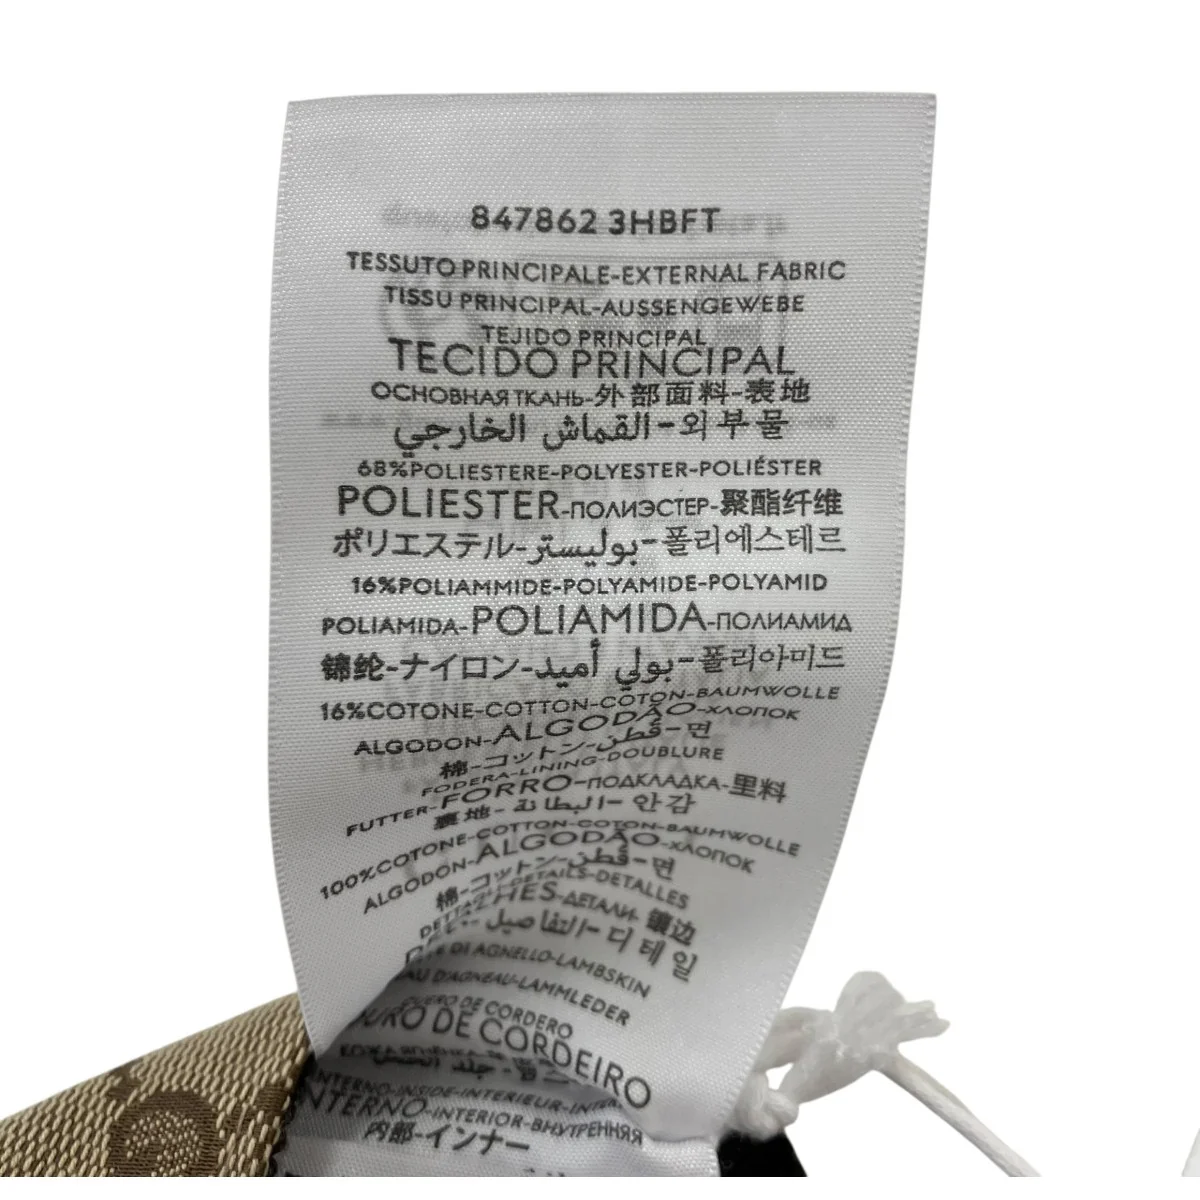 847862 3HBFT
TESSUTO PRINCIPALE-EXTERNAL FABRIC
TISSU PRINCIPAL-AUSSENGEWEBE
TEJIDO PRINCIPAL
TECIDO PRINCIPAL
ОСНОВНАЯ ТКАНЬ-外部面料-表地
القماش الخارجي-외부물
68%POLIESTERE-POLYESTER-POLIÉSTER
POLIESTER-ПОЛИЭСТЕР-聚酯纤维
ポリエステル-بوليستر-폴리에스테르
16%POLIAMMIDE-POLYAMIDE-POLYAMID
POLIAMIDA-POLIAMIDA-ПОЛИАМИД
锦纶-ナイロン-بولي أميد-폴리아미드
16%COTONE-COTTON-COTON-BAUMWOLLE
ALGODON-ALGODÃO-ХЛОПОК
棉-コットン-قطن-면
FODERA-LINING-DOUBLURE
FUTTER-FORRO-ПОДКЛАДКА-里料
裏地-البطانة-안감
100%COTONE-COTTON-COTON-BAUMWOLLE
ALGODON-ALGODÃO-ХЛОПОК
棉-コットン-قطن-면
DETAILS-DETALLES
ДЕТАЛИ-镶边
التفاصيل-디테일
DI AGNELLO-LAMBSKIN
D'AGNEAU-LAMMLEDER
CUERO DE CORDERO
DE CORDEIRO
جلد
INTERNO-INSIDE-INTERIEUR
INTERNO-INTERIOR-ВНУТРЕННЯЯ
内部-インナー